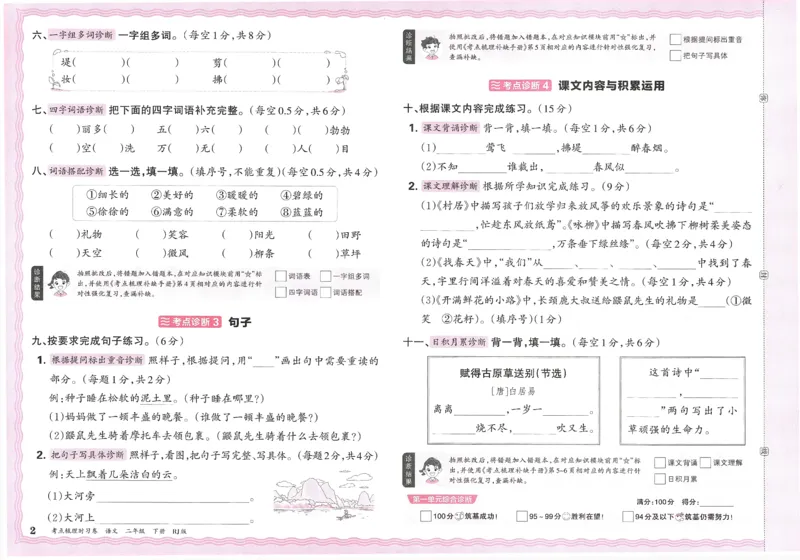 六、一字组多词诊断 一字组多词。(每空1分,共8分)
堤( )( ) 剪( )( )
妆( )( ) 拂( )( )
七、四字词语诊断 把下面的四字词语补充完整。(每空0.5分,共6分)
( )丽多( ) 五( )六( ) ( )( )勃勃
( )空( )洗 万( )无( ) ( )人( )目
八、词语搭配诊断 选一选,填一填。(填序号,不能重复)(每空0.5分,共4分)
①细长的 ②美好的 ③暖暖的 ④碧绿的
⑤徐徐的 ⑥满意的 ⑦柔软的 ⑧蓝蓝的
( )礼物 ( )笑容 ( )阳光 ( )田野
( )天空 ( )微风 ( )柳条 ( )草坪
诊断结果
按照批改后,将错题加入错题本,在对应知识模块前用“☆”标
出,并使用《考点梳理补缺手册》第4页相对应的内容进行针
对性强化复习,查漏补缺。
词语表 一字组多词
四字词语 词语搭配
考点诊断3 句子
九、按要求完成句子练习。(6分)
1. 根据提问标出重音诊断 照样子,根据提问,用“___”画出句中需要重读的
部分。(每题1分,共2分)
例:种子睡在松软的泥土里。(种子睡在哪里?)
(1)妈妈做了一顿丰盛的晚餐。(谁做了一顿丰盛的晚餐?)
(2)鼹鼠先生骑着摩托车去领包裹。(鼹鼠先生骑着什么去领包裹?)
2. 把句子写具体诊断 照样子,看图,把句子写完整、写具体。(每题2分,共4分)
例:天上飘着几朵洁白的云。
(1)大河旁______。
(2)大河上______。
2 考点梳理时习卷 语文 二年级 下册 RJ版
诊断结果
按照批改后,将错题加入错题本,在对应知识模块前用“☆”标出,并
使用《考点梳理补缺手册》第5页相对应的内容进行针对性强化复习,
查漏补缺。
根据提问标出重音
把句子写具体
考点诊断4 课文内容与积累运用
十、根据课文内容完成练习。(15分)
1. 课文背诵诊断 背一背,填一填。(每空1分,共6分)
(1)______莺飞______,拂堤______醉春烟。
(2)不知______谁裁出,______春风似______。
2. 课文理解诊断 根据所学知识完成练习。(9分)
(1)《村居》中描写孩子们放学归来放风筝的欢乐景象的诗句是“______
______,忙趁东风放纸鸢”。《咏柳》中描写春风吹拂下柳树柔美姿态
的诗句是“______,万条垂下绿丝绦”。(每空2分,共4分)
(2)《找春天》中,“我们”从______、______、______、______中找到了春
天,字里行间洋溢着对春天的喜爱和赞美之情。(每空1分,共4分)
(3)《开满鲜花的小路》中,长颈鹿大叔送给鼹鼠先生的礼物是____(①微
笑 ②花籽)。(填序号)(1分)
十一、日积月累诊断 背一背,填一填。(每空1分,共6分)
赋得古原草送别(节选)
[唐]白居易
离离______,一岁一______。
______烧不尽,______吹又生。
这首诗中“______
______,______
______”两句写出了小
草顽强的生命力。
诊断结果
按照批改后,将错题加入错题本,在对应知识模块前用“☆”标
出,并使用《考点梳理补缺手册》第5-6页相对应的内容进行针
对性强化复习,查漏补缺。
课文背诵 课文理解
日积月累
第一单元综合诊断 满分:100分 得分:______
100分 筑基成功! 95~99分 胜利在望! 94分及以下 筑基仍需努力!